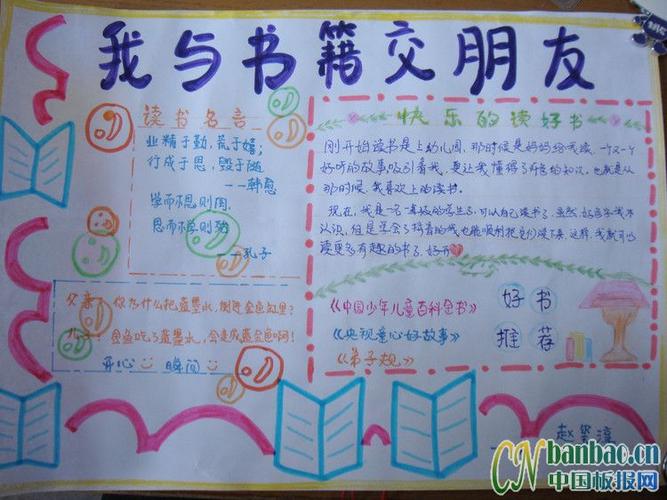 我与书籍交朋友
读书名言
业精于勤,荒于嬉;
行成于思,毁于随
——韩愈
学而不思则罔,
思而不学则殆
——孔子
父亲:你为什么把蓝墨水,倒进金鱼缸里?
儿子:金鱼吃了蓝墨水,会变成蓝金鱼啊!
开心 瞬间
快乐的读好书
刚开始读书是上幼儿园,那时候是妈妈给我读,一个又一个
好听的故事吸引着我,更让我懂得了许多的知识,也就是从
那时候,我喜欢上的读书。
现在,我是一名一年级的学生了,可以自己读书了,虽然好多字我不
认识,但是学会了拼音的我也能顺利把它们读下来,这样,我就可以
读更多有趣的书了,好开
《中国少年儿童百科全书》
《央视童心好故事》
《弟子规》
好书
推荐
CN banbao.cn
中国板报网